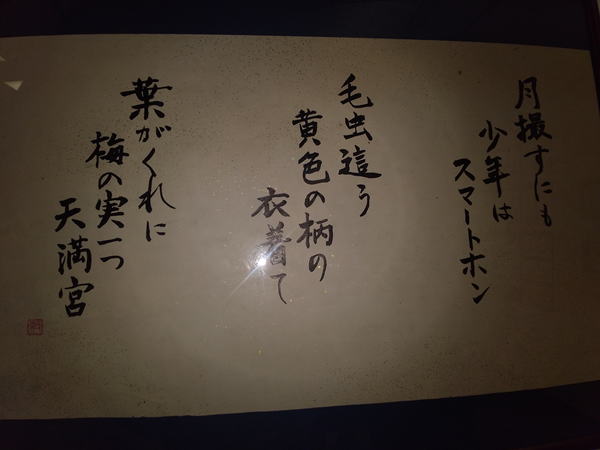 月撮すにも
少年は
スマートホン
毛虫這う
黄色の柄の
衣着て
葉がくれに
梅の実一つ
天満宮